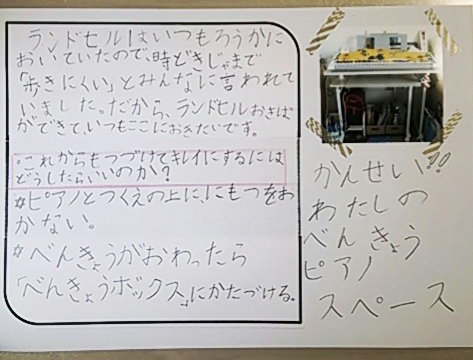 ランドセルはいつもろうかに
おいていたので、時どきじゃまで
「歩きにくい」とみんなに言われて
いました。だから、ランドセルおきば
ができて、いつもここにおきたいです。
・これからもつづけてキレイにするには
どうしたらいいのか?
*ピアノとつくえの上に、にもつをお
かない。
*べんきょうがおわったら
「べんきょうボックス」にかたづける。
かんせい!!
わたしの
べんきょう
ピアノ
スペース